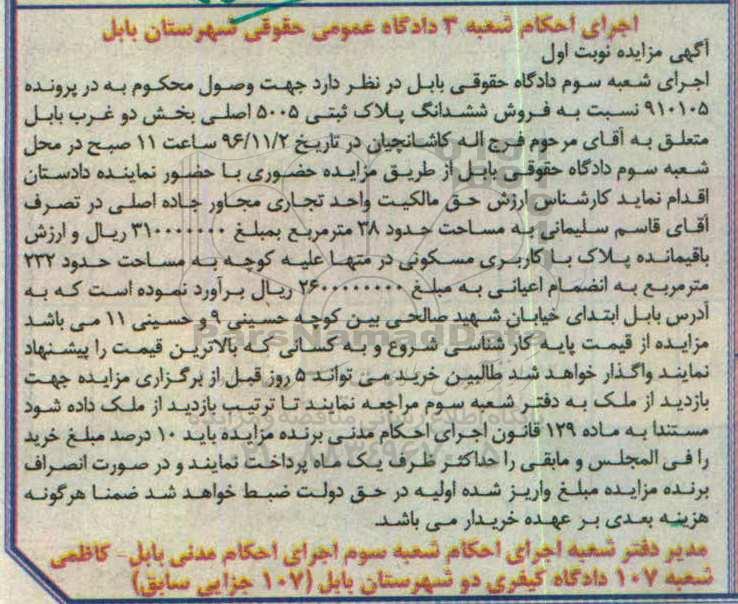 اجرای احکام شعبه ۳ دادگاه عمومی حقوقی شهرستان بابل
آگهی مزایده نوبت اول
اجرای شعبه سوم دادگاه حقوقی بابل در نظر دارد جهت وصول محکوم به در پرونده
۹۱۰۱۰۵ نسبت به فروش ششدانگ پلاک ثبتی ۵۰۰۵ اصلی بخش دو غرب بابل
متعلق به آقای مرحوم فرج اله کاشانچیان در تاریخ ۹۶/۱۱/۲ ساعت ۱۱ صبح در محل
شعبه سوم دادگاه حقوقی بابل از طریق مزایده حضوری با حضور نماینده دادستان
اقدام نماید کارشناس ارزش حق مالکیت واحد تجاری مجاور جاده اصلی در تصرف
آقای قاسم سلیمانی به مساحت حدود ۳۸ مترمربع بمبلغ ۳۱۰۰۰۰۰۰۰ ریال و ارزش
باقیمانده پلاک با کاربری مسکونی در منتها علیه کوچه به مساحت حدود ۲۳۲
مترمربع به انضمام اعیانی به مبلغ ۲۶۰۰۰۰۰۰۰۰ ریال برآورد نموده است که به
آدرس بابل ابتدای خیابان شهید صالحی بین کوچه حسینی ۹ و حسینی ۱۱ می باشد
مزایده از قیمت پایه کارشناسی شروع و به کسانی که بالاترین قیمت را پیشنهاد
نمایند واگذار خواهد شد طالبین خرید می تواند ۵ روز قبل از برگزاری مزایده جهت
بازدید از ملک به دفتر شعبه سوم مراجعه نمایند تا ترتیب بازدید از ملک داده شود
مستندا به ماده ۱۲۹ قانون اجرای احکام مدنی برنده مزایده باید ۱۰ درصد مبلغ خرید
را فی المجلس و مابقی را حداکثر ظرف یک ماه پرداخت نمایند و در صورت انصراف
برنده مزایده مبلغ واریز شده اولیه در حق دولت ضبط خواهد شد ضمنا هرگونه
هزینه بعدی بر عهده خریدار می باشد.
مدیر دفتر شعبه اجرای احکام شعبه سوم اجرای احکام مدنی بابل - کاظمی
شعبه ۱۰۷ دادگاه کیفری دو شهرستان بابل (۱۰۷ جزایی سابق)
ParsNamadData